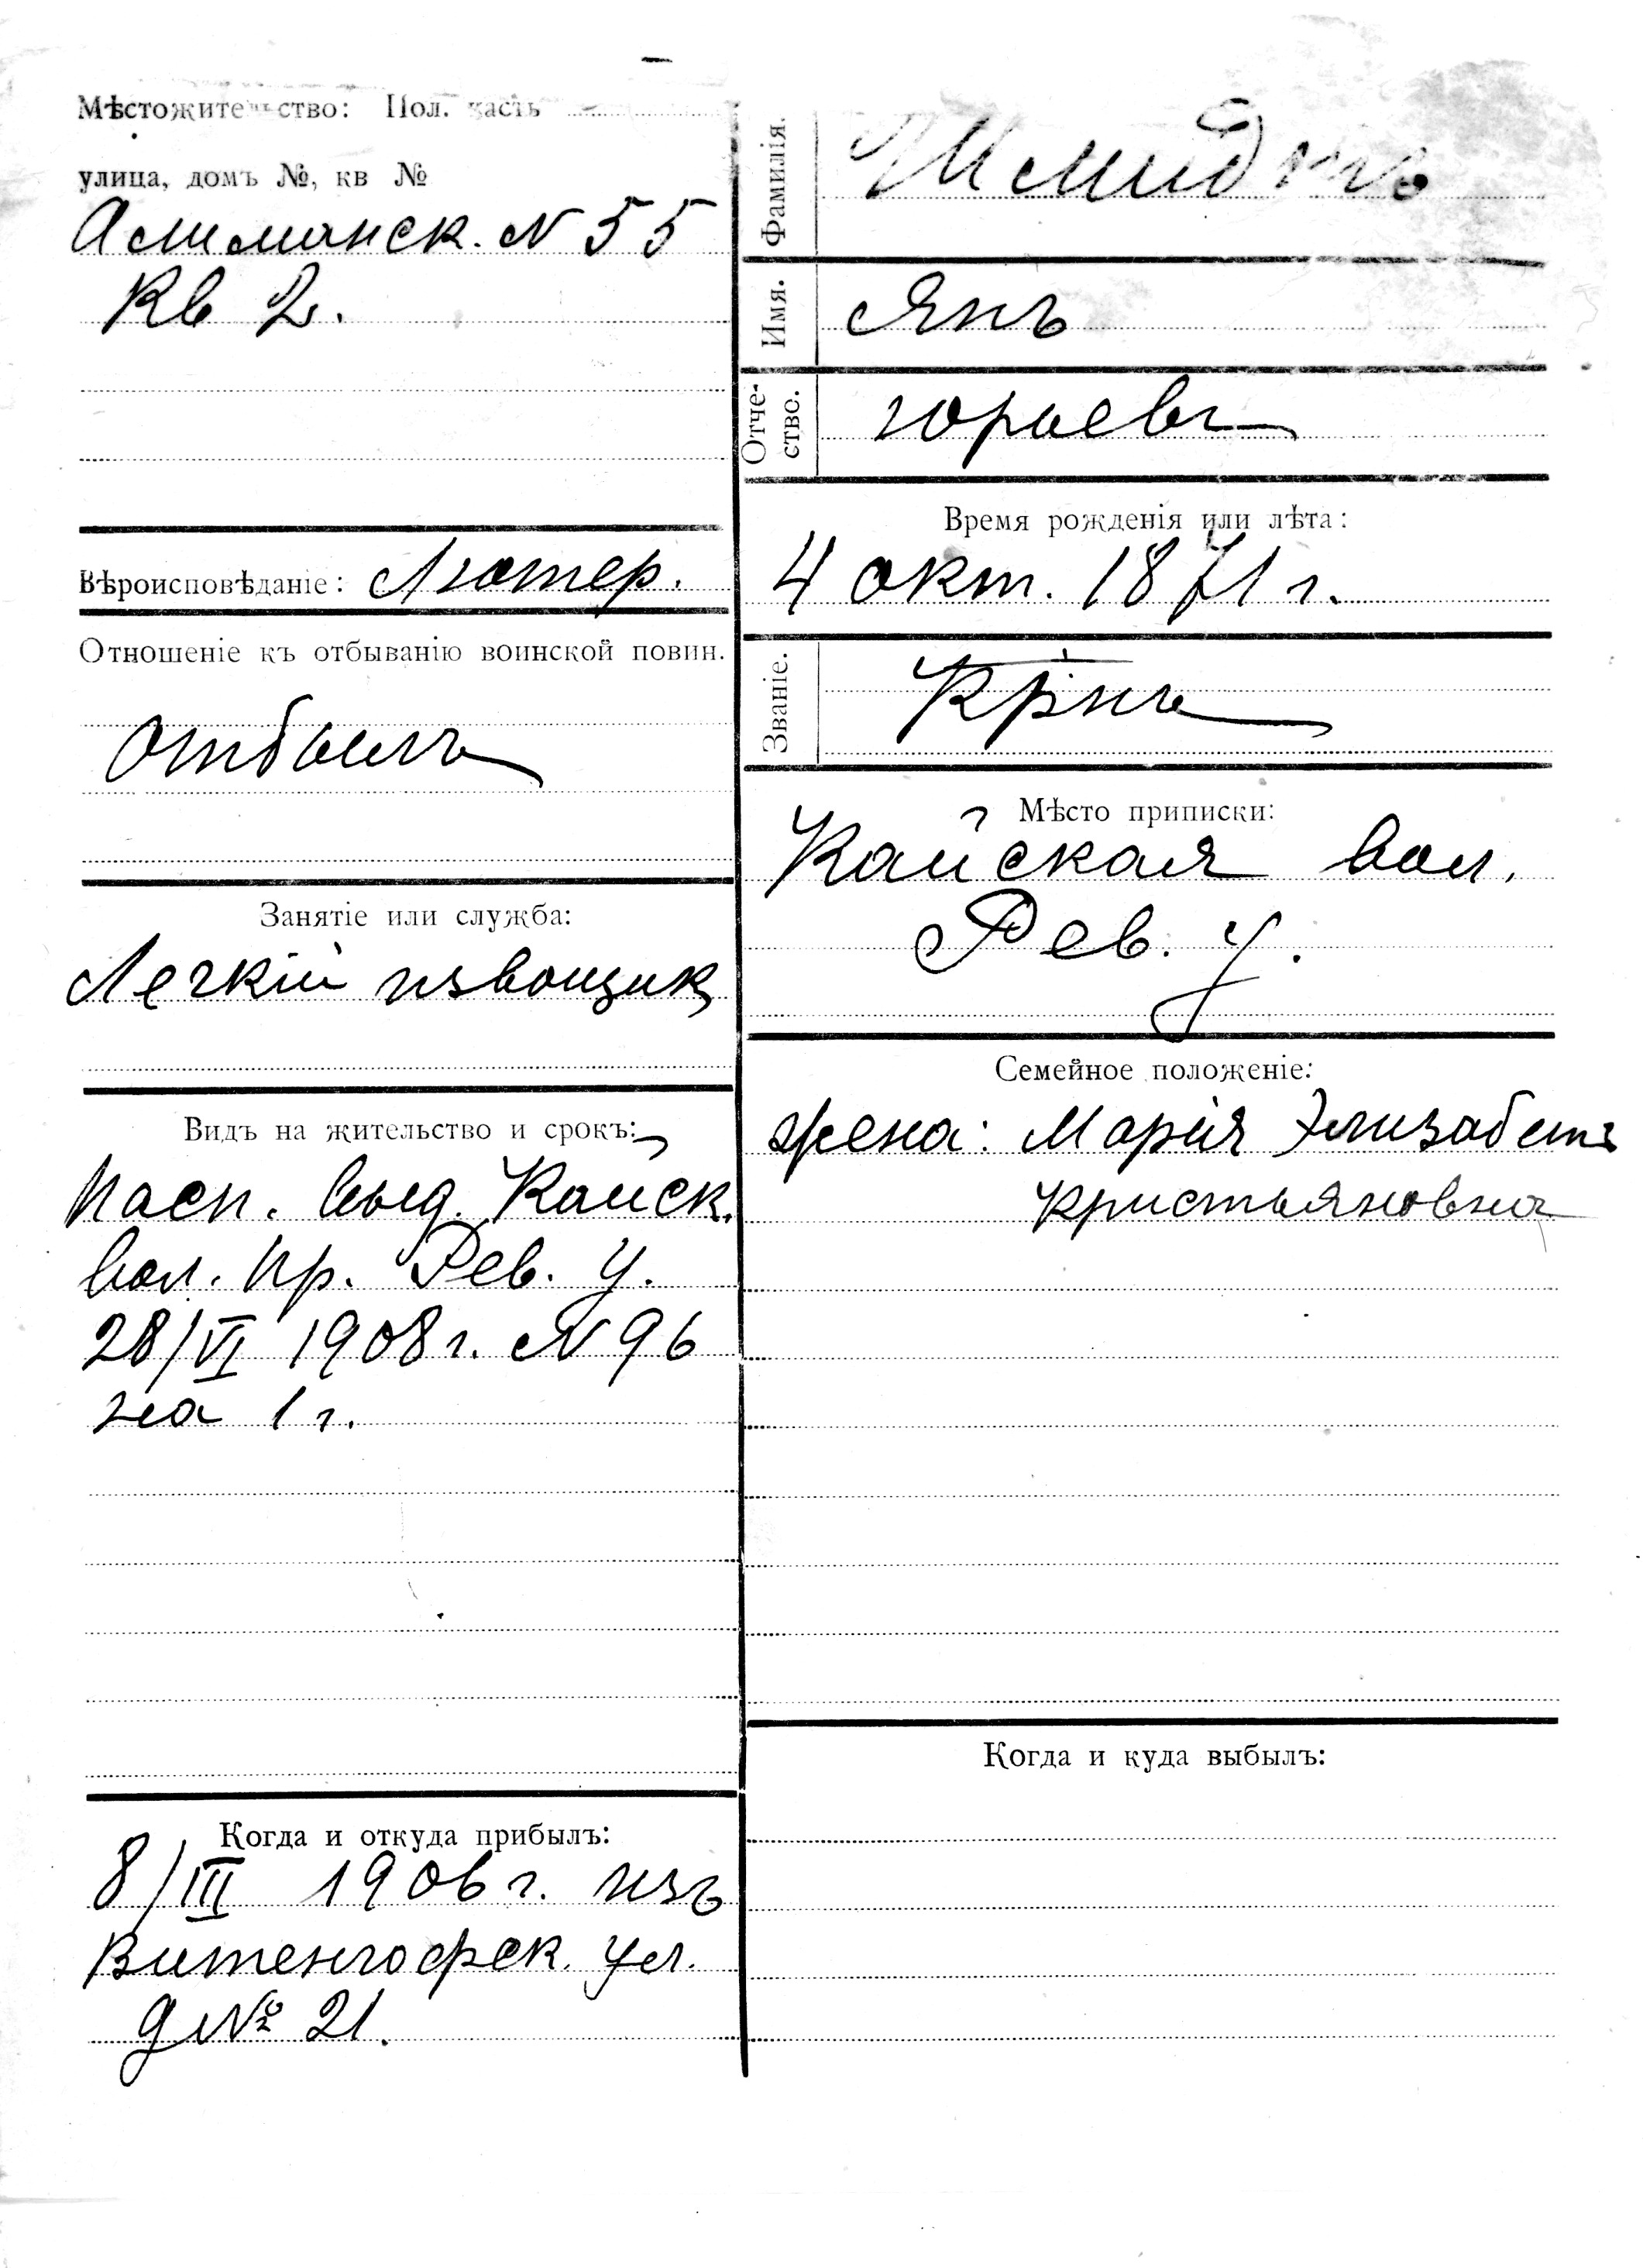 Мѣстожительство: Пол. часть
улица, домъ №, кв №
Алиманск. N 55
Кв 2.
Вѣроисповѣданіе: Лютер.
Отношеніе къ отбыванію воинской повин.
Отбылъ
Занятіе или служба:
Легкій извощик
Видъ на жительство и срокъ:
Пасп. выд. Кайск.
вол. пр. Рев. у.
28/VI 1908 г. N 96
на 1 г.
Когда и откуда прибылъ:
8/III 1906 г. изъ
Витенгофск. ул.
д № 21.
Фамилія. Шмидтъ
Имя. Янъ
Отче-
ство. Юрьевъ
Время рожденія или лѣта:
4 окт. 1871 г.
Званіе. Кр-нъ
Мѣсто приписки:
Кайская вол.
Рев. у.
Семейное положеніе:
жена: Марія Элизабетъ
Кристьяновна
Когда и куда выбылъ: